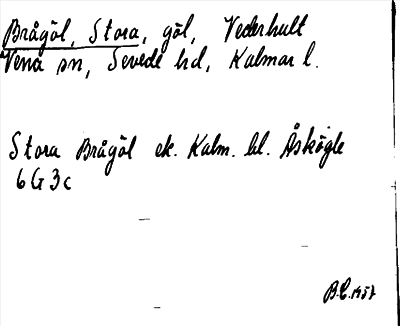 Brågöl, Stora, göl, Vederhult
Vena sn, Sevede hd, Kalmar l.
Stora Brågöl ek. Kalm. bl. Åskögle
6G3c
B.E. 1957